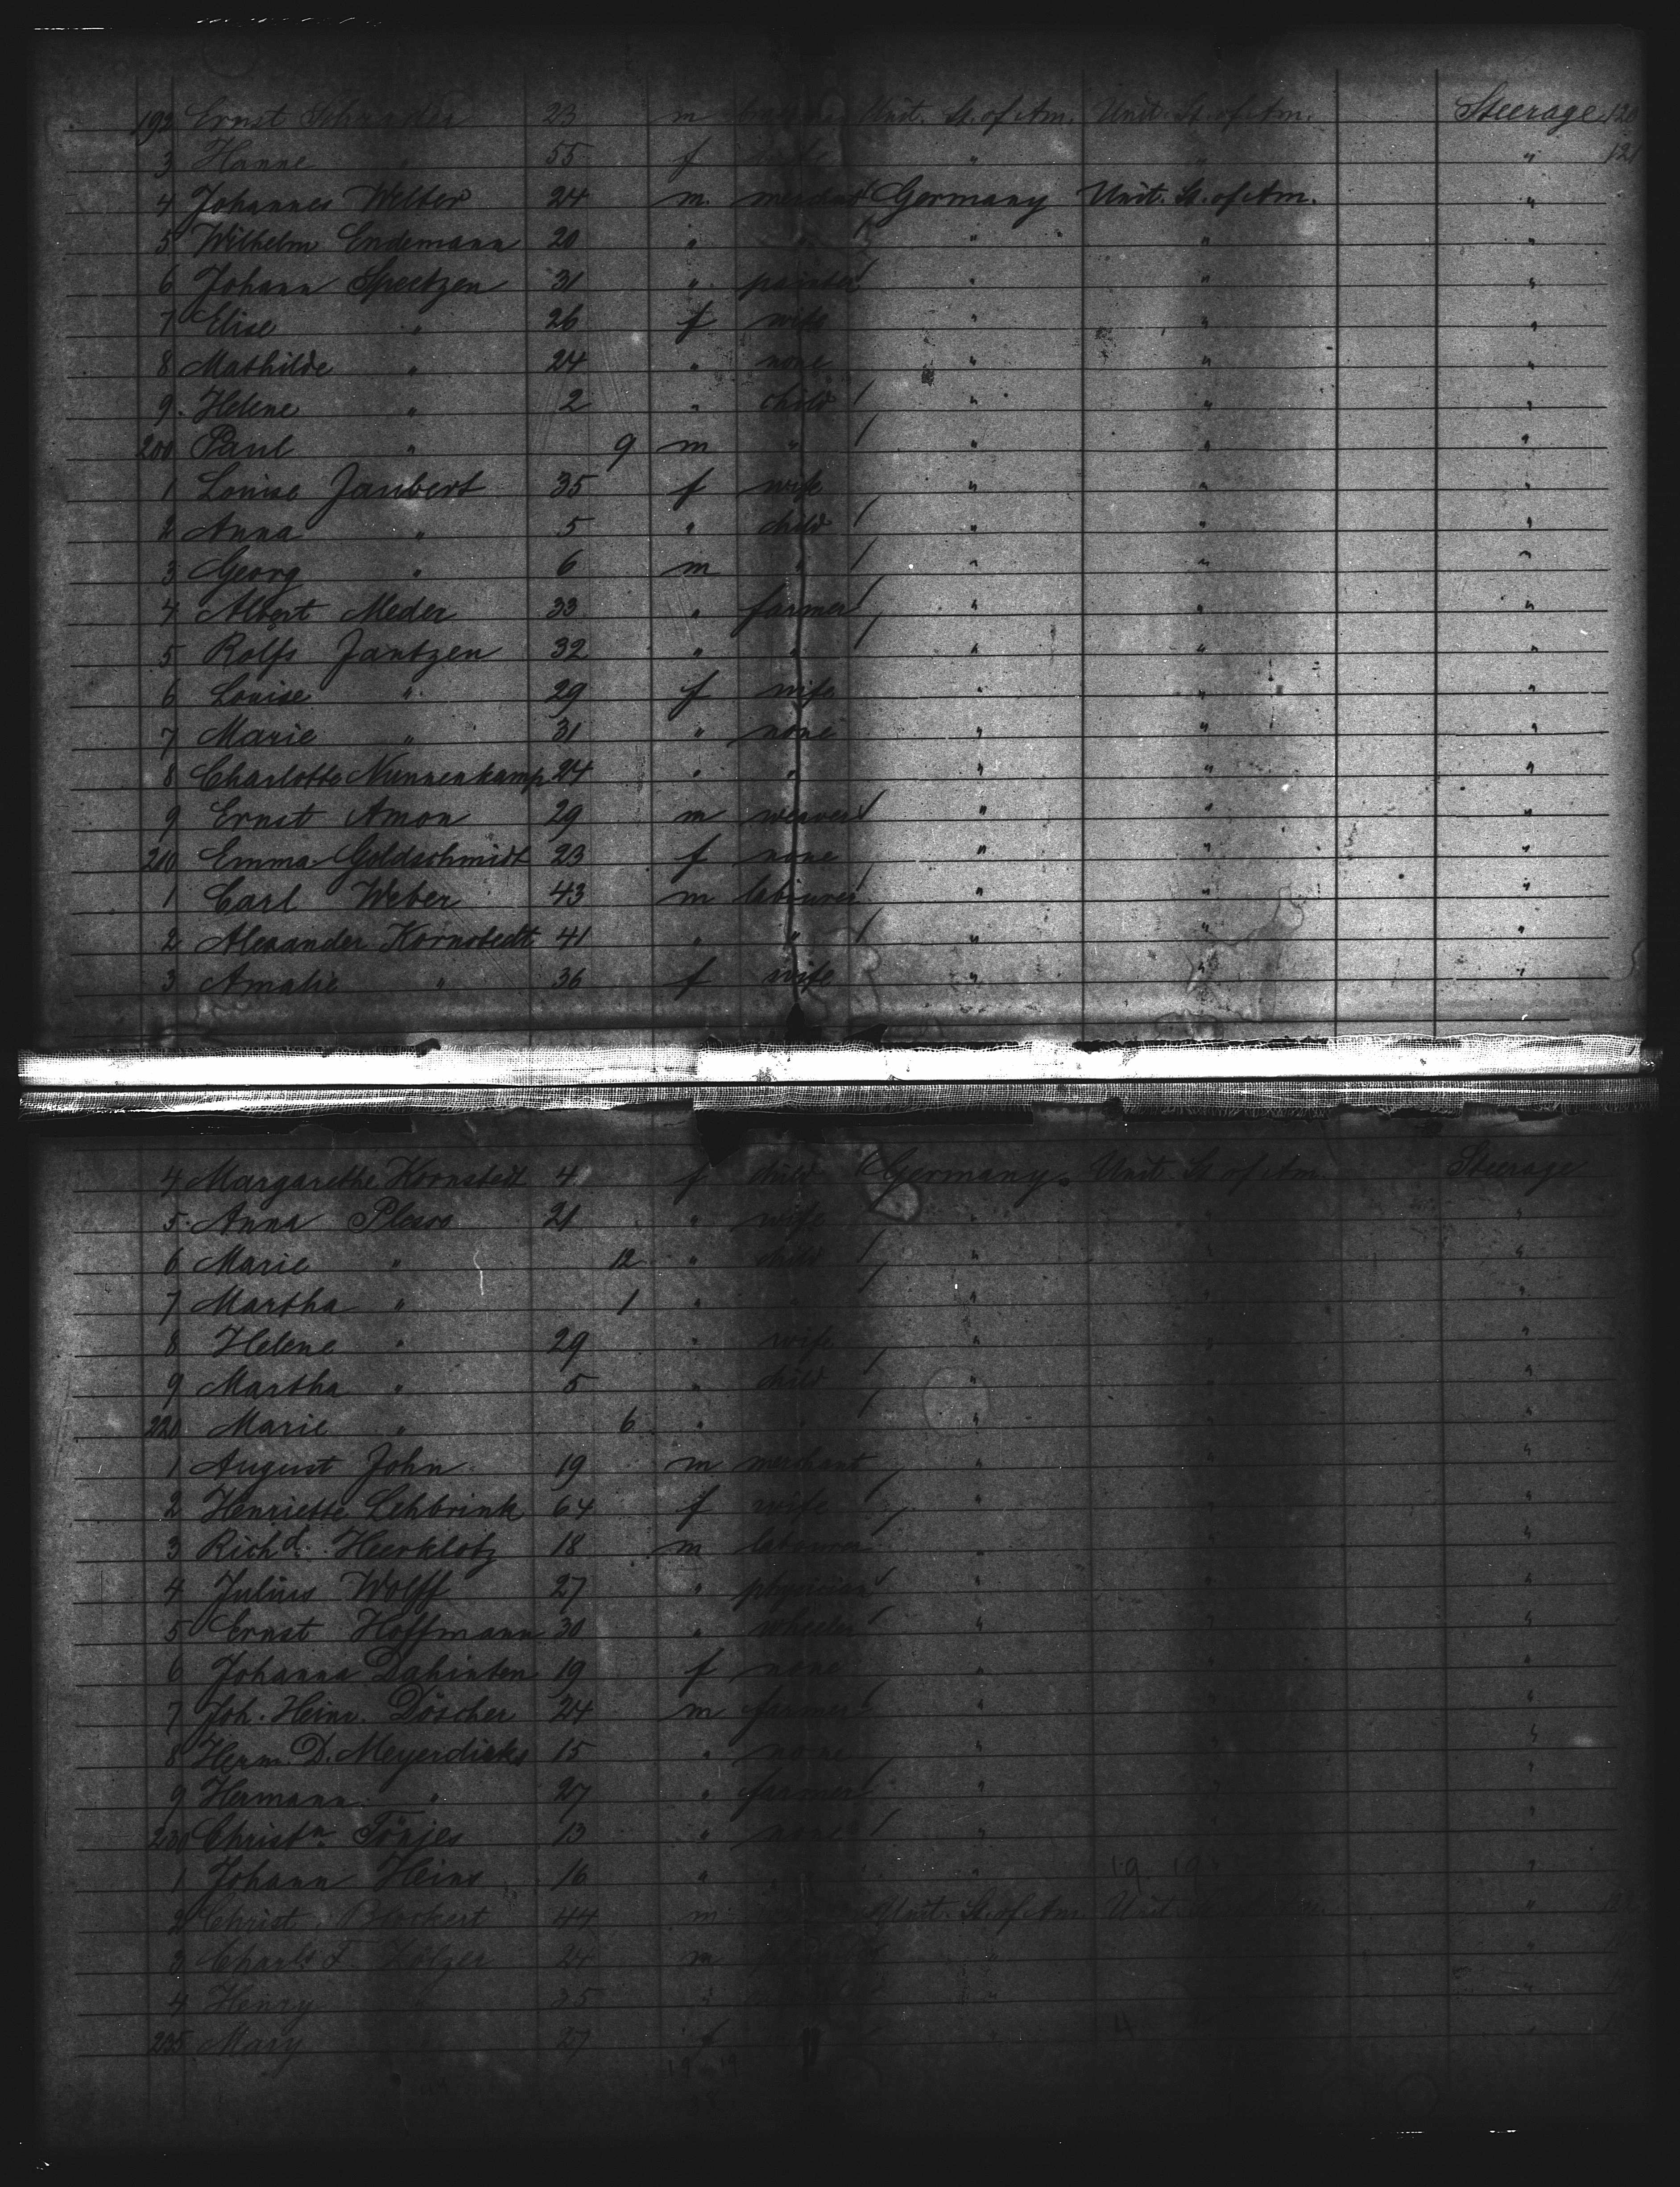 192 Ernst 23 m Unit. St. of Am. Unit. St. of Am. Steerage 120
3 Hanne " 55 f wife " " " 121
4 Johannes Welter 24 m. merchant Germany Unit. St. of Am. "
5 Wilhelm Endemann 20 " " " " "
6 Johann Speetzen 31 " painter " " "
7 Elise " 26 f wife " " "
8 Mathilde " 24 " none " " "
9. Helene " 2 " child " " "
200 Paul " 9 m " " " "
1 Louise Jaubert 35 f wife " " "
2 Anna " 5 " child " " "
3 Georg " 6 m " " " "
4 Albert Meder 33 " farmer " " "
5 Rolfs Jantzen 32 " " " " "
6 Louise " 29 f wife " " "
7 Marie " 31 " none " " "
8 Charlotte Nunnenkamp 24 " " " " "
9 Ernst Amon 29 m weaver " " "
210 Emma Goldschmidt 23 f none " " "
1 Carl Weber 43 m labourer " " "
2 Alexander Kornstedt 41 " " " " "
3 Amalie " 36 f wife " " "
4 Margarethe Kornstedt 4 f child Germany. Unit. St. of Am. Steerage
5. Anna 21 " wife " " "
6 Marie " 12 " child " " "
7 Martha " 1 " " " " "
8 Helene " 29 " wife " " "
9 Martha " 5 " child " " "
220 Marie " 6 " " " " "
1 August John 19 m merchant " " "
2 Henriette Lehbrink 64 f wife " " "
3 Richd. Heerklotz 18 m labourer " " "
4 Julius Wolff 27 " physician " " "
5 Ernst Hoffmann 30 " wheeler " " "
6 Johanna Dahinten 19 f none " " "
7 Joh. Heinr. Döscher 24 m farmer " " "
8 Herm. D. Meyerdierks 15 " none " " "
9 Hermann " 27 " farmer " " "
230 Christn. Tönjes 13 " none " " "
1 Johann Heins 16 " " " "
2 Christ. Blockert 44 m Unit. St. of Am. Unit. "
3 Charls F. 24 m " "
4 Henry 35 " " "
235 Mary 27 f